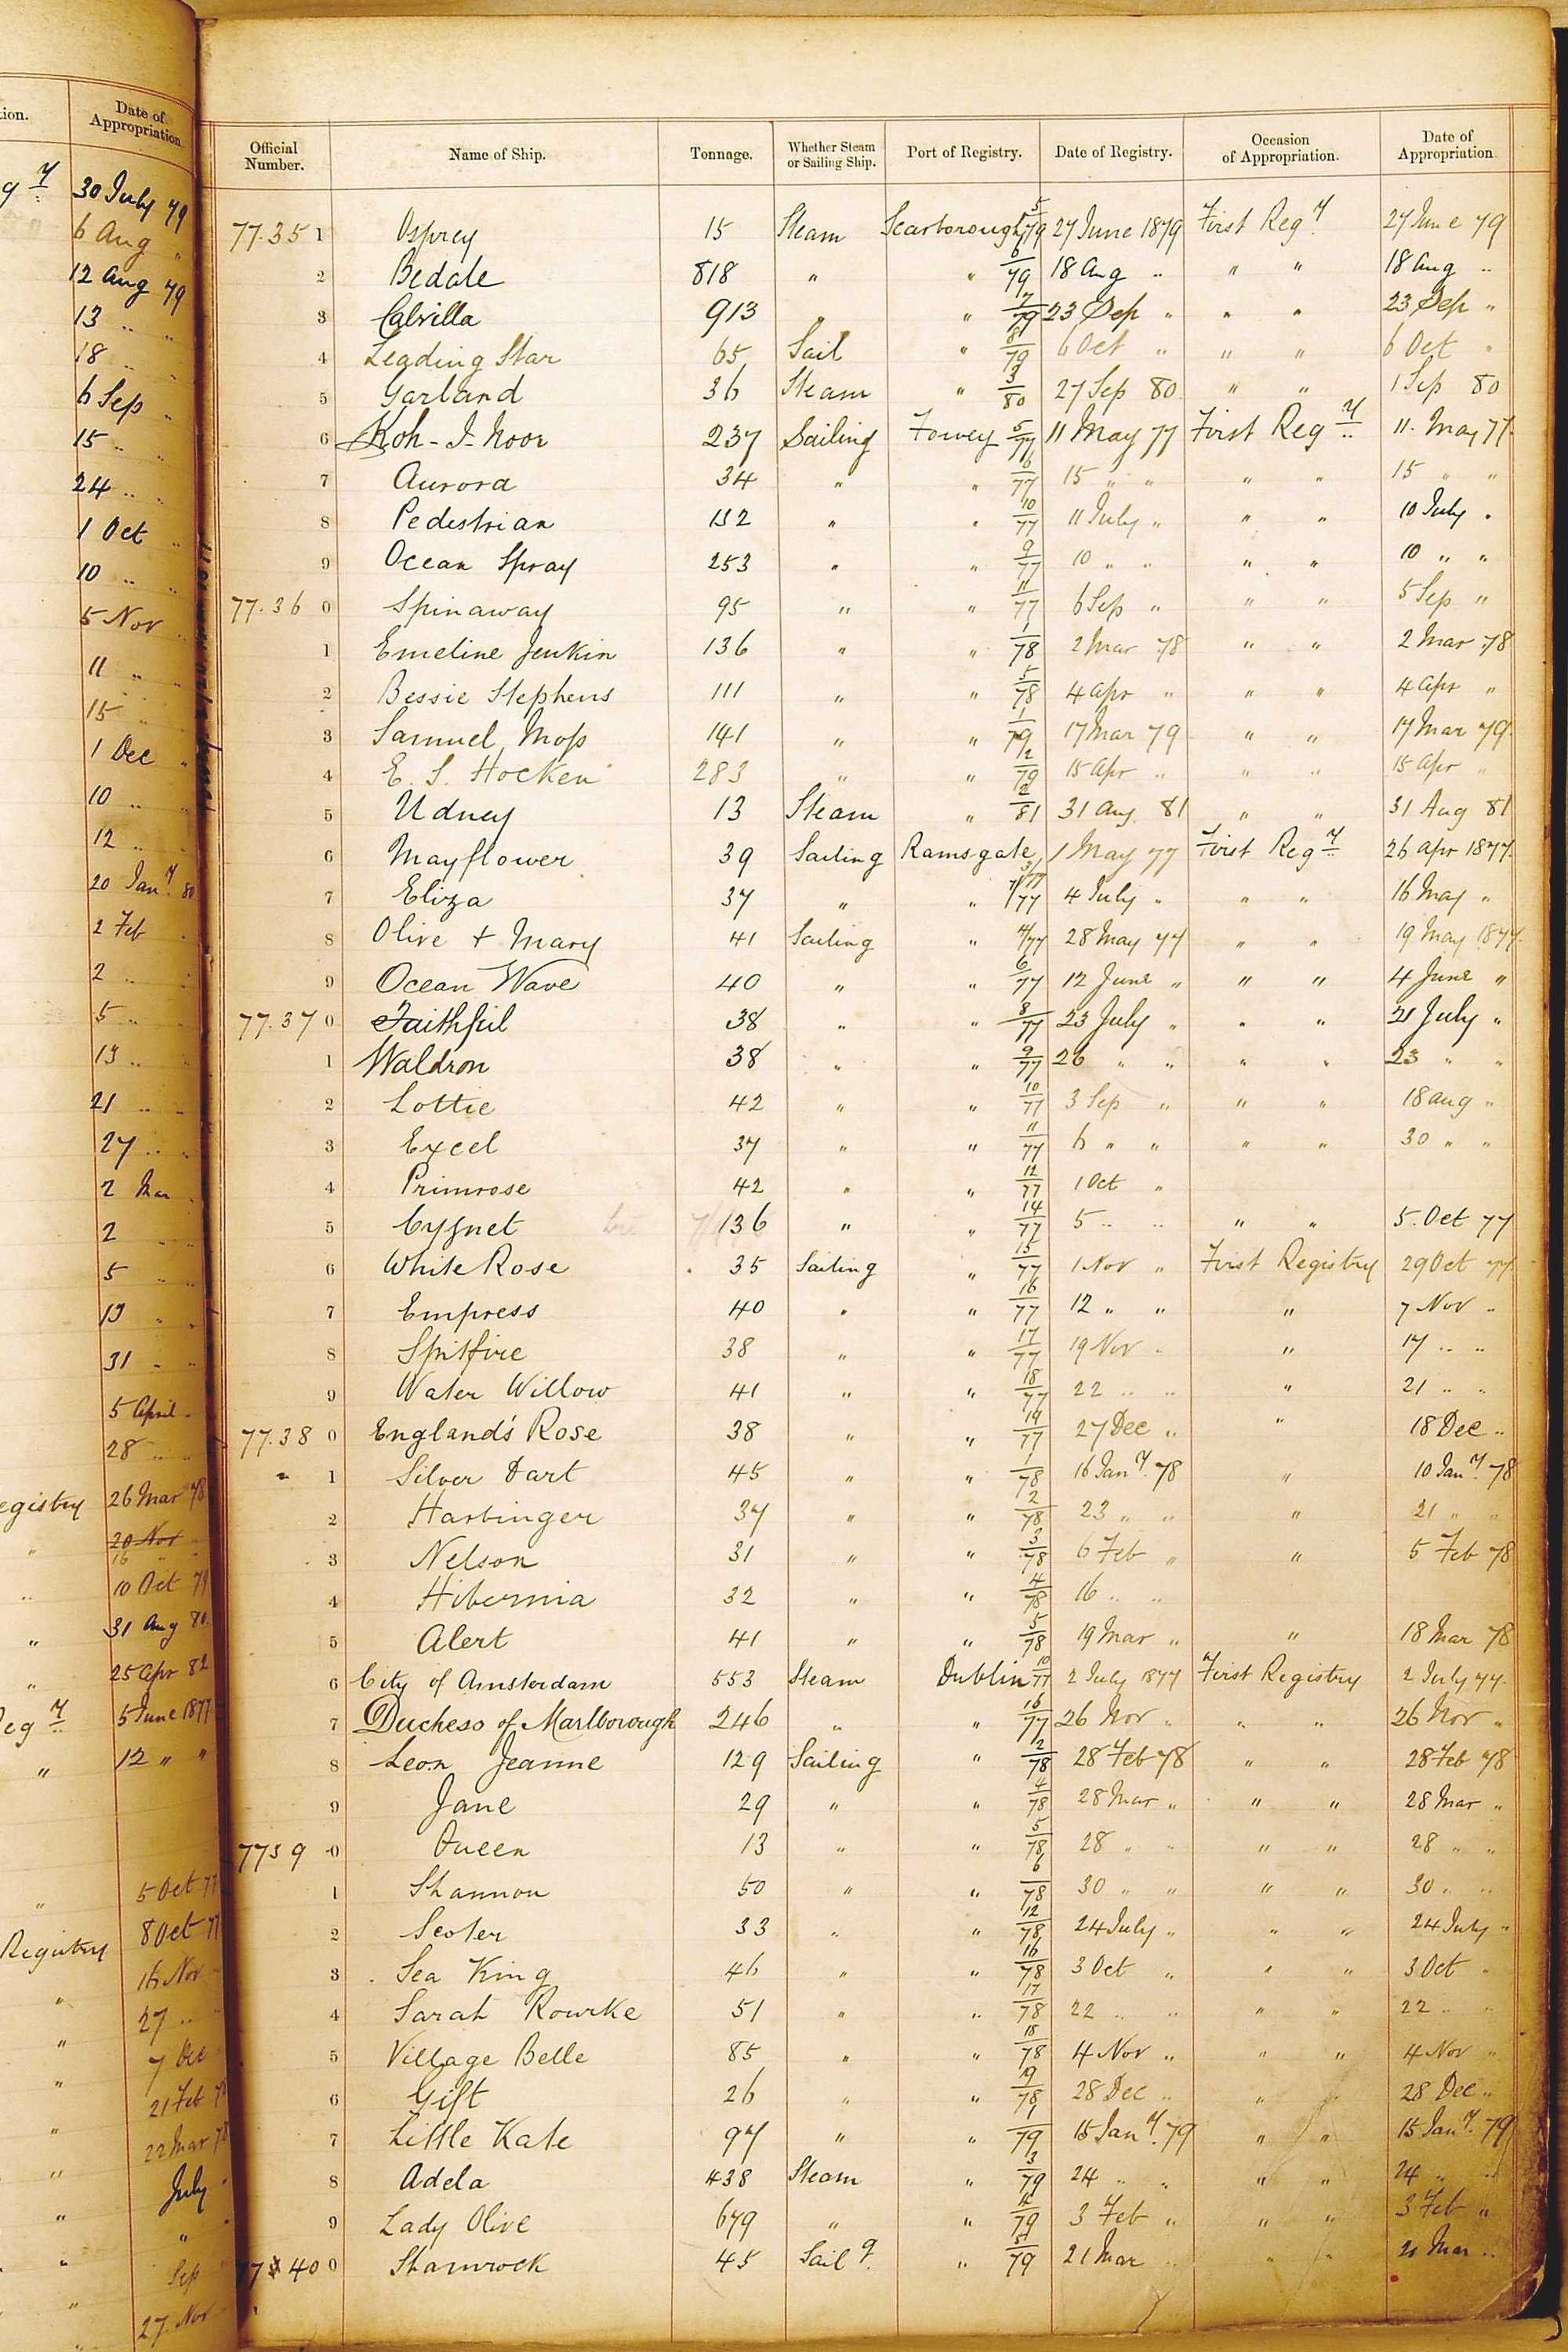 tion.
Date of Appropriation
30 July 79
6 Aug "
12 Aug 79
13 " "
18 " "
6 Sep "
15 " "
24 " "
1 Oct "
10 " "
5 Nov "
11 " "
15 "
1 Dec "
10 " "
12 " "
20 Jany 80
2 Feb "
2 "
5 "
13 " "
21 " "
27 " "
2 Mar "
2 "
5 " "
19 " "
31 " "
5 April "
28 " "
egistry 26 Mar 78
" 20 Nov
16 "
" 10 Oct 79
" 31 Aug 80
" 25 Apr 82
Regy 5 June 1877
" 12 " "
" 5 Oct 77
Registry 8 Oct 77
" 16 Nov
" 27 "
" 7 Dec
" 21 Feb 78
" 22 Mar 78
" July
" "
" Sep
" 27 Nov
Official Number. Name of Ship. Tonnage. Whether Steam or Sailing Ship. Port of Registry. Date of Registry. Occasion of Appropriation. Date of Appropriation
77.35 1 Osprey 15 Steam Scarborough 5/79 27 June 1879 First Regy 27 June 79
2 Bedale 818 " " 6/79 18 Aug " " " 18 Aug "
3 Calvilla 913 " " 7/79 23 Sep " " " 23 Sep "
4 Leading Star 65 Sail " 8/79 6 Oct " " " 6 Oct "
5 Garland 36 Steam " 3/80 27 Sep 80 " " 1 Sep 80
6 Koh-I-Noor 237 Sailing Fowey 5/77 11 May 77 First Regy 11 May 77
7 Aurora 34 " " 6/77 15 " " " " 15 " "
8 Pedestrian 132 " " 10/77 11 July " " " 10 July "
9 Ocean Spray 253 " " 9/77 10 " " " " 10 " "
77.36 0 Spinaway 95 " " 11/77 6 Sep " " " 5 Sep "
1 Emeline Jenkin 136 " " 1/78 2 Mar 78 " " 2 Mar 78
2 Bessie Stephens 111 " " 5/78 4 Apr " " " 4 Apr "
3 Samuel Moss 141 " " 1/79 17 Mar 79 " " 17 Mar 79
4 E. S. Hocken 283 " " 2/79 15 Apr " " " 15 Apr "
5 Udney 13 Steam " 2/81 31 Aug 81 " " 31 Aug 81
6 Mayflower 39 Sailing Ramsgate 3/77 1 May 77 First Regy 26 Apr 1877
7 Eliza 37 " " 7/77 4 July " " " 16 May "
8 Olive + Mary 41 Sailing " 4/77 28 May 77 " " 19 May 1877
9 Ocean Wave 40 " " 6/77 12 June " " " 4 June "
77.37 0 Faithful 38 " " 8/77 23 July " " " 21 July "
1 Waldron 38 " " 9/77 26 " " " " 23 " "
2 Lottie 42 " " 10/77 3 Sep " " " 18 Aug "
3 Excel 37 " " 11/77 6 " " " " 30 " "
4 Primrose 42 " " 12/77 1 Oct "
5 Cygnet 136 " " 14/77 5 " " " " 5 Oct 77
6 White Rose 35 Sailing " 15/77 1 Nov " First Registry 29 Oct 77
7 Empress 40 " " 16/77 12 " " " 7 Nov "
8 Spitfire 38 " " 17/77 19 Nov " " 17 " "
9 Water Willow 41 " " 18/77 22 " " " 21 " "
77.38 0 England's Rose 38 " " 19/77 27 Dec " " 18 Dec "
1 Silver Dart 45 " " 1/78 16 Jany 78 " 10 Jany 78
2 Harbinger 37 " " 2/78 23 " " " 21 " "
3 Nelson 31 " " 3/78 6 Feb " " 5 Feb 78
4 Hibernia 32 " " 4/78 16 " "
5 Alert 41 " " 5/78 19 Mar " " 18 Mar 78
6 City of Amsterdam 553 Steam Dublin 10/77 2 July 1877 First Registry 2 July 77
7 Duchess of Marlborough 246 " " 16/77 26 Nov " " " 26 Nov "
8 Leon Jeanne 129 Sailing " 2/78 28 Feb 78 " " 28 Feb 78
9 Jane 29 " " 4/78 28 Mar " " " 28 Mar "
7739 0 Queen 13 " " 5/78 28 " " " " 28 " "
1 Shannon 50 " " 6/78 30 " " " " 30 " "
2 Scoter 33 " " 12/78 24 July " " " 24 July "
3 Sea King 46 " " 16/78 3 Oct " " " 3 Oct "
4 Sarah Rourke 51 " " 17/78 22 " " " " 22 " "
5 Village Belle 85 " " 18/78 4 Nov " " " 4 Nov "
6 Gift 26 " " 19/78 28 Dec " " " 28 Dec "
7 Little Kate 97 " " 1/79 15 Jany 79 " " 15 Jany 79
8 Adela 438 Steam " 3/79 24 " " " " 24 " "
9 Lady Olive 679 " " 4/79 3 Feb " " " 3 Feb "
77 40 0 Shamrock 45 Sailg " 5/79 21 Mar " " " 21 Mar "